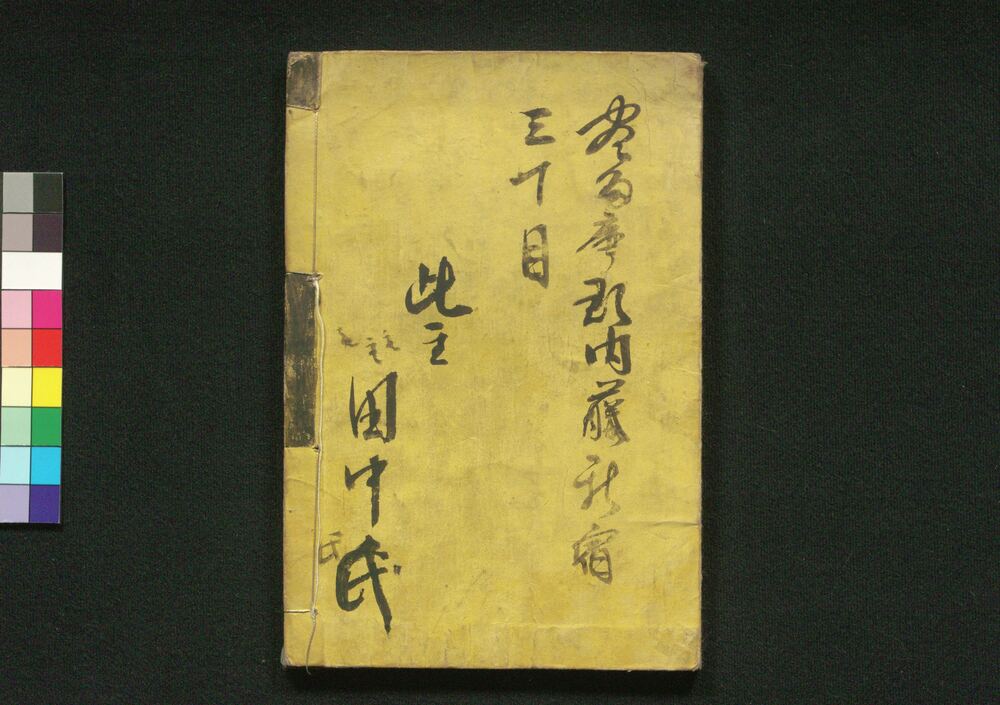 豊多摩郡内藤新宿
三丁目
此主
田中氏
氏